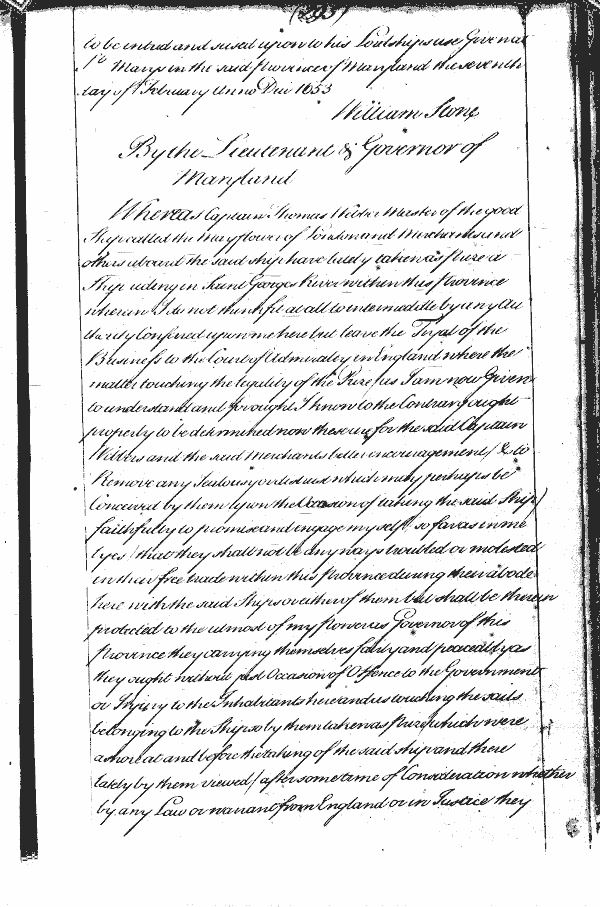 (293)
to be entred and seised upon to his Lordships use Given at
St Marys in the said Province of Maryland the seventh
day of February Anno Dni 1653
William Stone
By the Lieutenant & Governor of
Maryland
Whereas Captain Thomas Webber Master of the good
Ship called the Mayflower of London and Merchants and
others aboard the said Ship have lately taken as Prize a
Ship riding in Saint Georges River within this Province
wherein I do not think fit at all to intermeddle by any Au
thority Conferred upon me here but leave the Tryal of the
Business to the Court of Admiralty in England where the
matter touching the legality of the Prize (as I am now Given
to understand and for ought I know to the Contrary) ought
properly to be determined now these are for the said Captain
Webbers and the said Merchants better encouragement (& to
Remove any Jealousy or distrust which may perhaps be
Conceived by them upon the Occasion of taking the said Ship)
faithfully to promise and engage myself (so far as in me
lyes) that they shall not be any ways troubled or molested
in their free trade within this Province during their abode
here with the said Ships or either of them but shall be therein
protected to the utmost of my power as Governor of this
Province they carrying themselves fairly and peaceably as
they ought without just Occasion of Offence to the Government
or Injury to the Inhabitants here and as touching the sails
belonging to the Ship so by them taken as Prize which were
ashore at and before the taking of the said ship and there
lately by them viewed) after some time of Consideration whether
by any Law or warrant from England or in Justice they